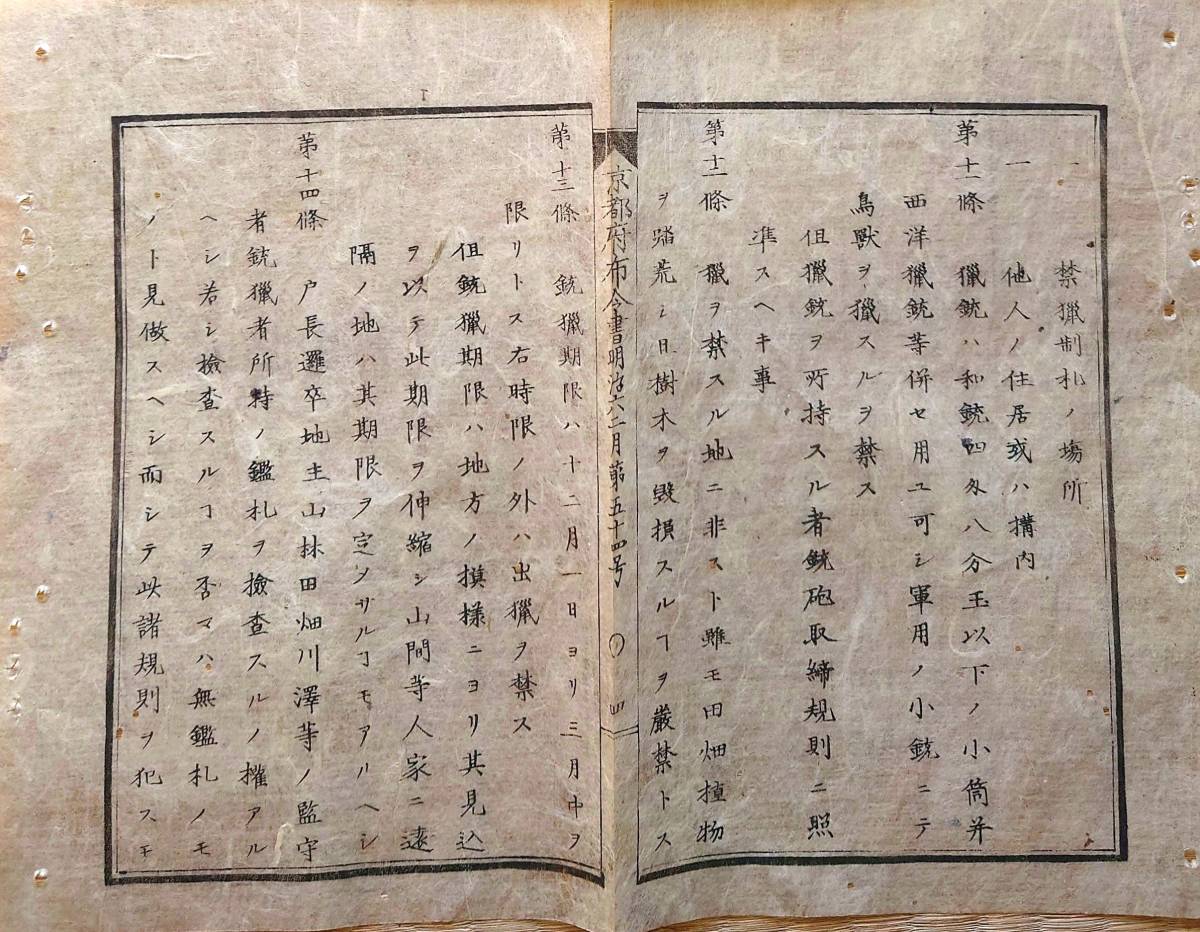 一 禁猟制札ノ場所
一 他人ノ住居或ハ搆内
第十一條 猟銃ハ和銃四匁八分玉以下ノ小筒并
西洋猟銃等併セ用ユ可シ軍用ノ小銃ニテ
鳥獸ヲ猟スルヲ禁ス
但猟銃ヲ所持スル者銃砲取締規則ニ照
準スヘキ事
第十二條 猟ヲ禁スル地ニ非スト雖モ田畑植物
ヲ踏荒シ且樹木ヲ毀損スルヿヲ嚴禁トス
京都府布令書明治六二月第五十四号 〇 四
第十三條 銃猟期限ハ十二月一日ヨリ三月中ヲ
限リトス右時限ノ外ハ出猟ヲ禁ス
但銃猟期限ハ地方ノ摸様ニヨリ其見込
ヲ以テ此期限ヲ伸縮シ山間等人家ニ遠
隔ノ地ハ其期限ヲ定メザルヿモアルヘシ
第十四條 戸長邏卒地主山林田畑川澤等ノ監守
者銃猟者所持ノ鑑札ヲ檢查スルノ權アル
ヘシ若シ檢查スルヿヲ否マハ無鑑札ノモ
ノト見做スヘシ而シテ此諸規則ヲ犯スモ